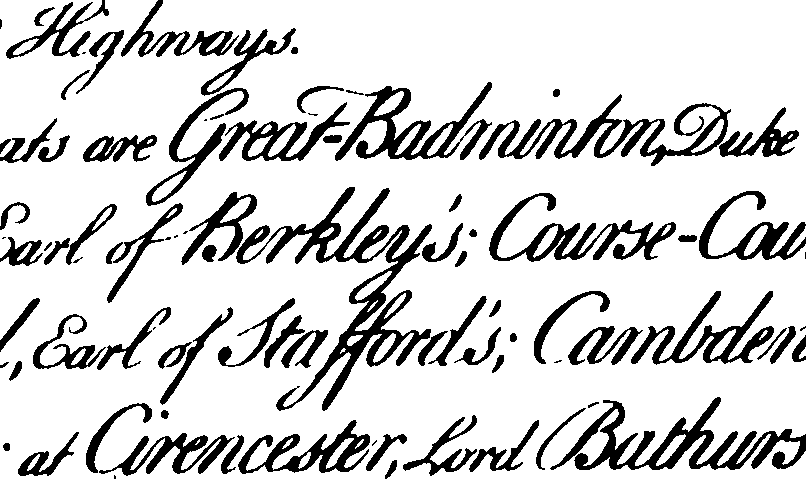 Highways.
ats are Great-Badminton, Duke
Earl of Berkley's; Course-Cou
Earl of Stafford's; Cambden
at Cirencester, Lord Bathurs